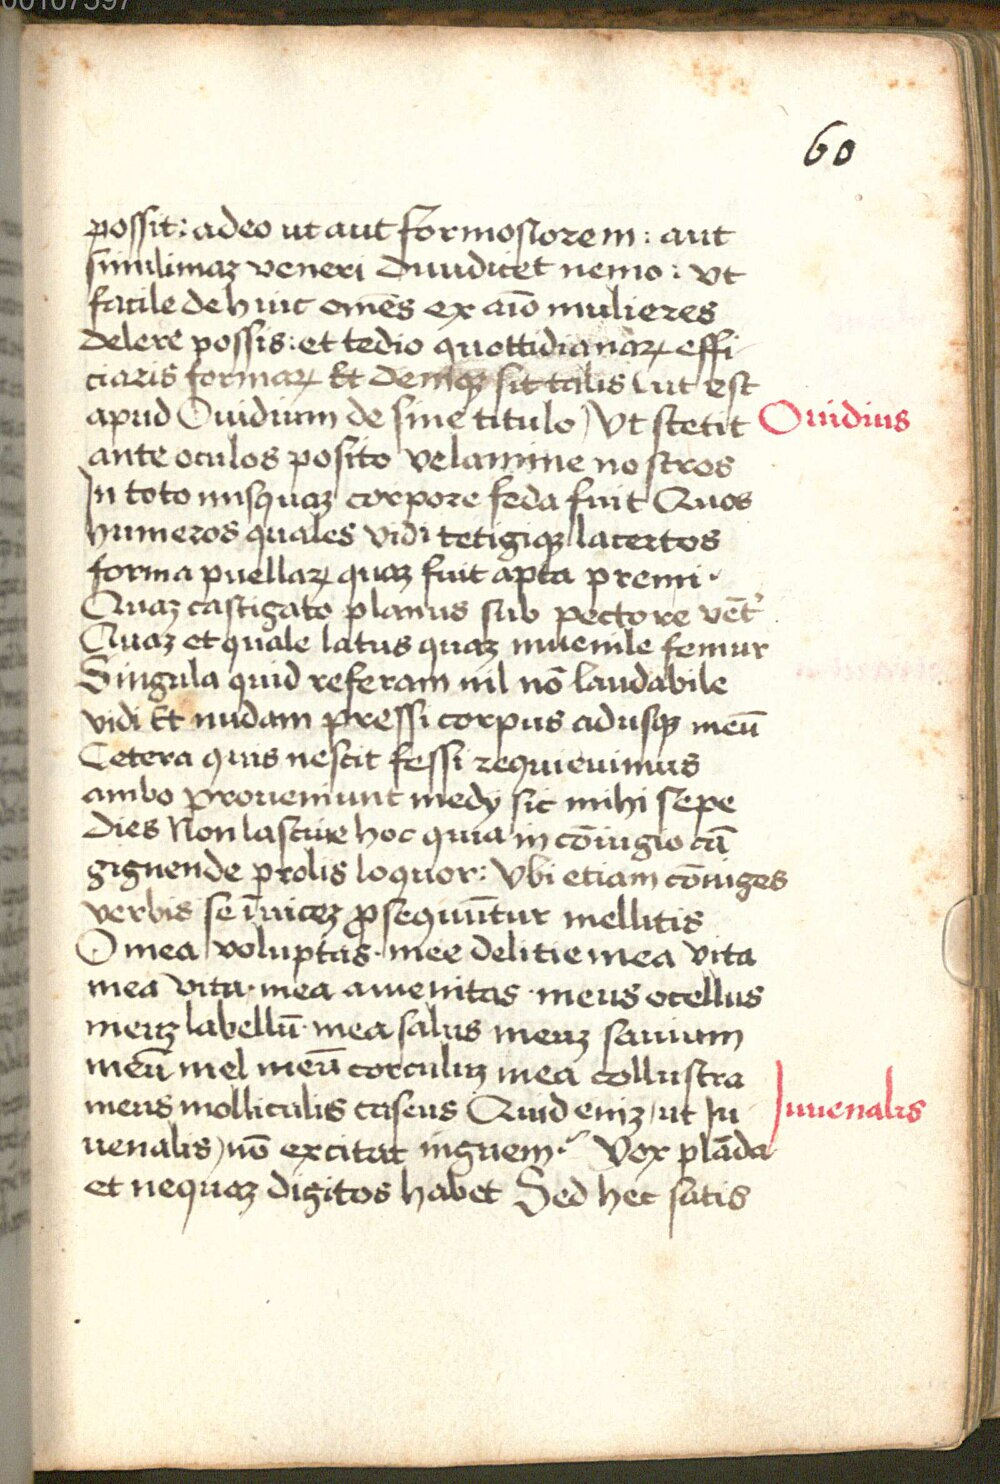 00107597
60
possit: adeo ut aut formosiorem: aut
simillimaꝫ veneri diiudicet nemo: vt
facile dehinc omēs ex aīo mulieres
delere possis: et tedio quottidianaꝝ effi
ciaris formaꝝ Et deniqꝫ sit talis (ut est
apud Ouidium de sine titulo) Vt stetit
Ouidius
ante oculos posito velamine nostros
In toto nusquaꝫ corpore feda fuit Quos
humeros quales vidi tetigiqꝫ lacertos
forma puellaꝝ quaꝫ fuit apta premi.
Quaꝫ castigato planus sub pectore vēt᷒
Quaꝫ et quale latus quaꝫ iuuenile femur
Singula quid referam nil nō laudabile
vidi Et nudam pressi corpus adusqꝫ meū
Cetera quis nescit fessi requieuimus
ambo proueniunt medy sic mihi sepe
dies Non lasciue hoc quia in cōiugio cā
gignende prolis loquor: Vbi etiam cōiuges
verbis se īuiceꝫ ꝓsequūtur mellitis
O mea voluptas. mee delitie mea vita
mea vita. mea amenitas. meus ocellus
meuꝫ labellū. mea salus meuꝫ sauium
meū mel meū corculuꝫ mea collustra
meus molliculus caseus Quid eniꝫ (ut Iu
Iuuenalis
uenalis) nō excitat inguem. Vox blāda
et nequaꝫ digitos habet Sed hec satis